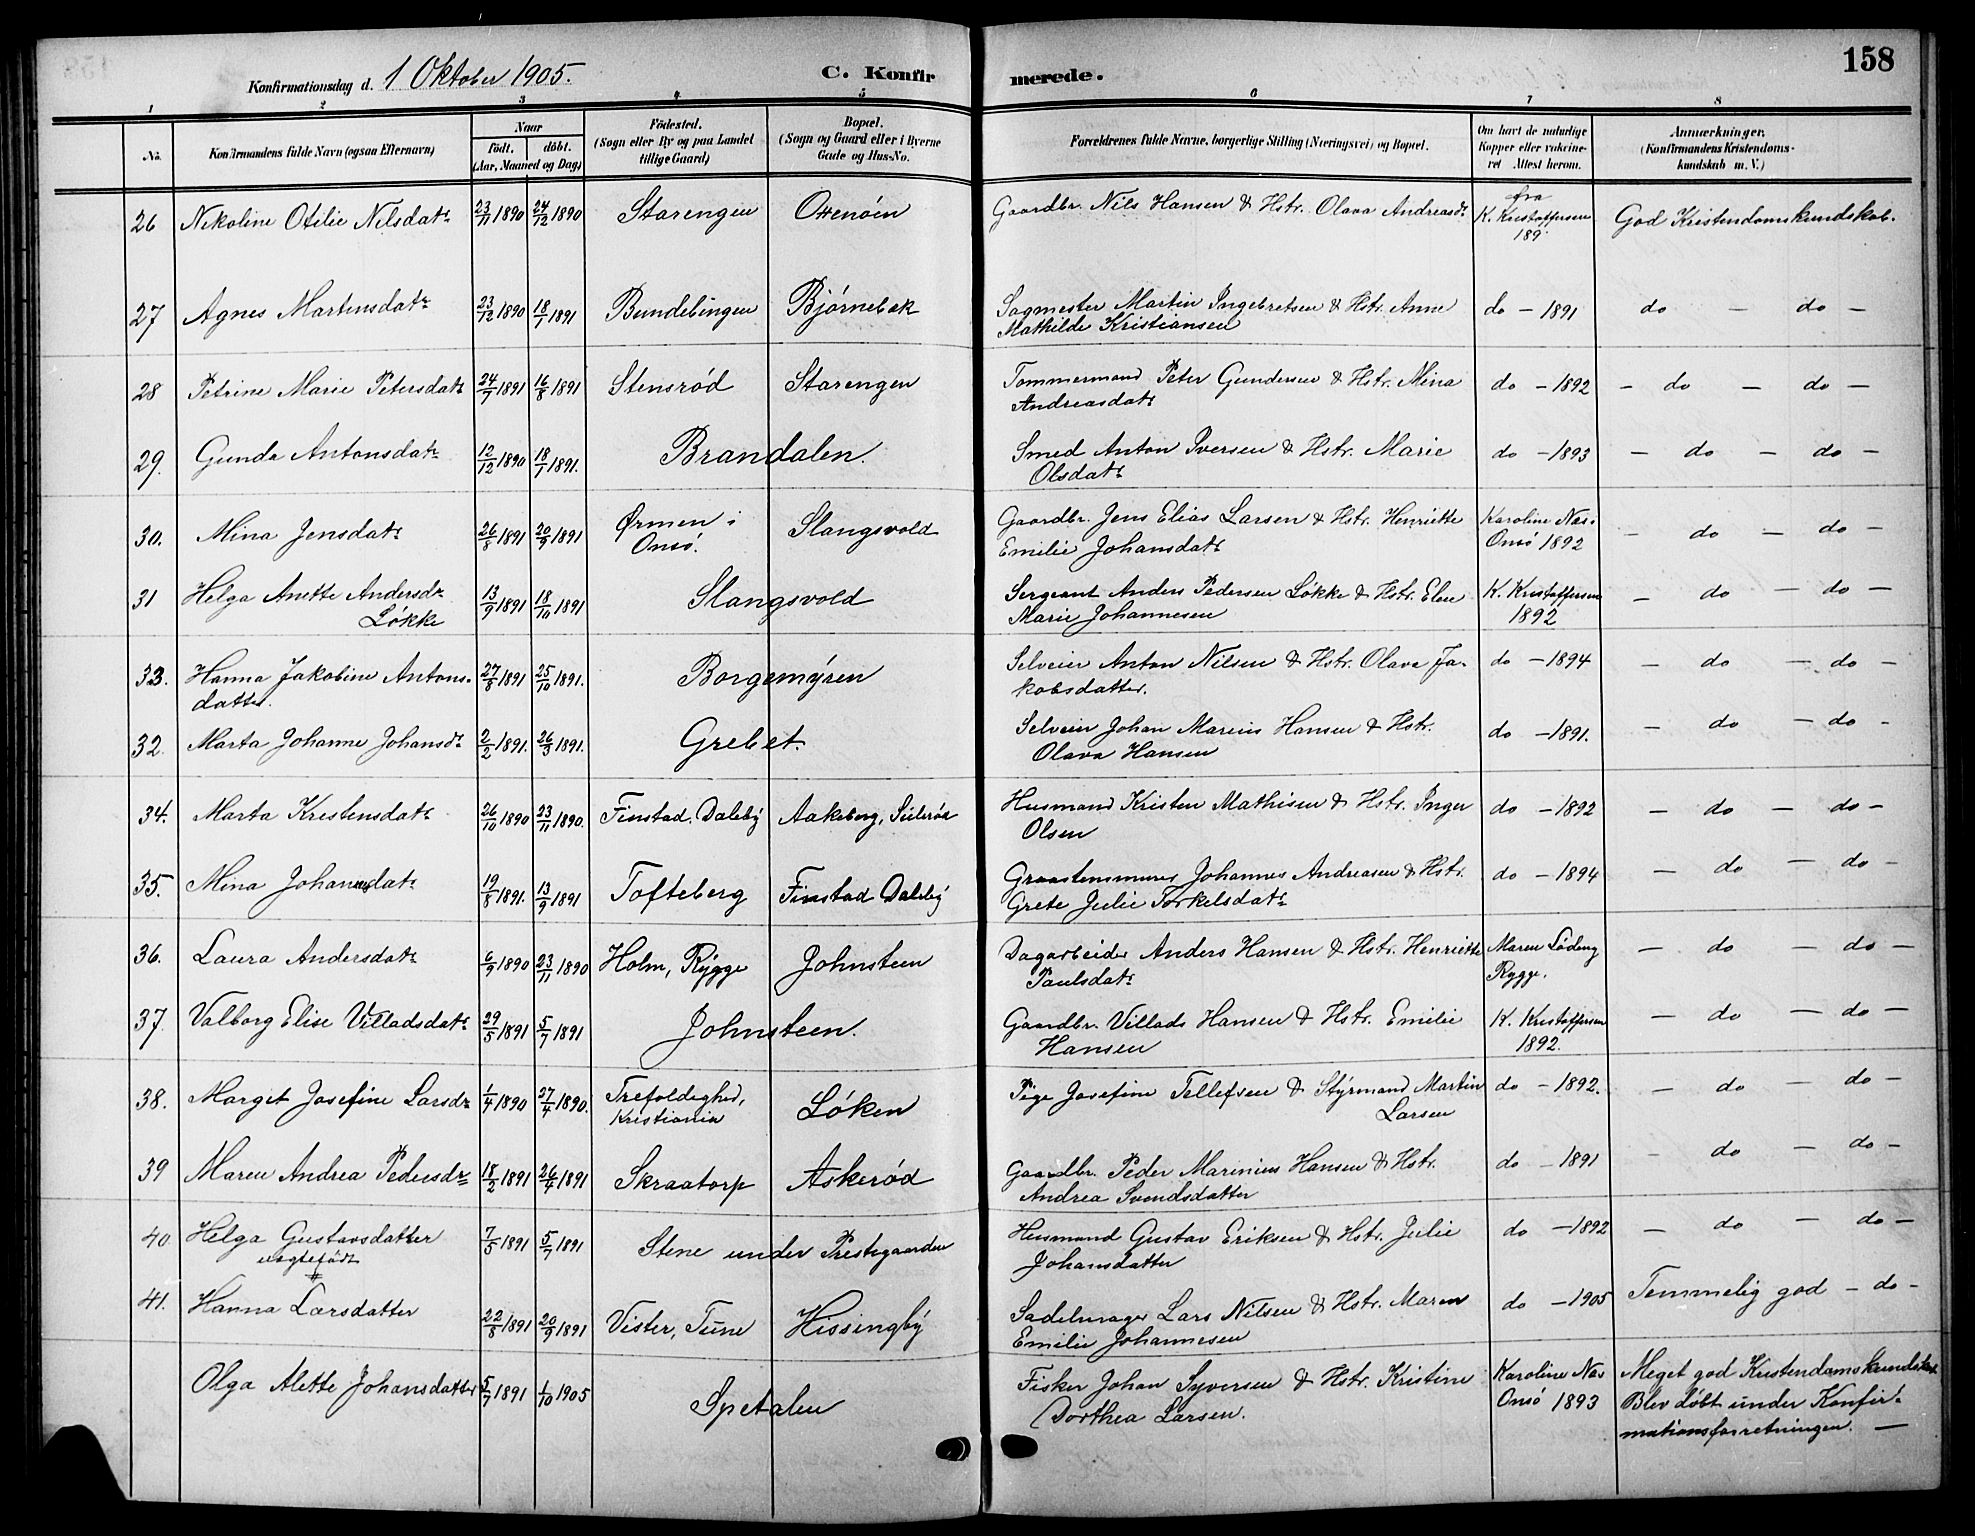 158
Konfirmationsdag d. 1 Oktober 1905.
C. Konfirmerede.
1 2 3 4 5 6 7 8
No. | Konfirmandens fulde Navn (ogsaa Efternavn) | Naar født. døbt. (Aar, Maaned og Dag) | Fødested. (Sogn eller By og paa Landet tillige Gaard) | Bopæl. (Sogn og Gaard eller i Byerne Gade og Hus-No. | Forældrenes fulde Navne, borgerlige Stilling (Næringsvei) og Bopæl. | Om havt de naturlige Kopper eller vakcineret Attest herom. | Anmærkninger. (Konfirmandens Kristendomskundskab m. V.)
26 Nikoline Otilie Nilsdatr 23/11 1890 24/12 1890 Starengen Ottenöen Gaardbr. Nils Hansen & Hstr. Olava Andreasdr fra K. Kristoffersen 189 God Kristendomskundskab.
27 Agnes Martinsdatr 23/12 1890 18/1 1891 Bundebingen Bjørnebæk Sagmester Martin Ingebretsen & Hstr. Anne
Mathilde Kristiansen do – 1891 do – do –
28 Petrine Marie Petersdatr 24/7 1891 16/8 1891 Stensrød Starengen Tømmermand Peter Gundersen & Hstr. Mina
Andreasdatr do – 1892 – do – do –
29. Gunda Antonsdatr 12/12 1890 18/1 1891. Brandalen. Smed Anton Iversen & Hstr. Marie
Olsdatr do – 1893 – do – do –
30. Mina Jensdatr 26/8 1891 20/9 1891 Ørmen i Onsö. Slangsvold Gaardbr. Jens Elias Larsen & Hstr. Henriette
Emilie Johansdatr Karoline Næs. Onsö 1892 – do – do –
31 Helga Anette Andersdr
Løkke 13/9 1891 18/10 1891 Slangsvold Sergeant Anders Pedersen Løkke & Hstr. Elen
Marie Johannesen K. Kristoffersen 1892 – do – do –
33. Hanna Jakobine Antons-
datter. 27/8 1891 25/10 1891. Borgemyren Selveier Anton Nilsen & Hstr. Olava Ja-
kobsdatter. do – 1894 – do – do –
32. Marta Johanne Johansdr 2/2 1891. 26/3 1891. Grebet. Selveier Johan Marius Hansen & Hstr.
Olava Hansen do – 1891. – do – do –
34. Marta Kristensdatr 26/10 1890 23/11 1890. Finstad, Daleby Aakeberg, Husmand Kristen Mathisen & Hstr. Inger
Olsen do – 1892 – do – do –
35. Mina Johannesdatr 19/8 1891. 13/9 1891 Tofteberg Finstad Daleby Graastensmurer Johannes Andreasen & Hstr.
Grete Julie Torkelsdatr do – 1894 – do – do –
36. Laura Andersdatr 6/9 1890 23/11 1890 Holm, Rygge Johnsteen Dagarbeider Anders Hansen & Hstr. Henriette
Paulsdatr Maren Rygge. – do – do –
37. Valborg Elise Villadsdatr 29/5 1891 5/7 1891 Johnsteen. Gaardbr. Villads Hansen & Hstr. Emilie
Hansen K. Kristoffersen 1892. – do – do –
38. Marget Josefine Larsdr 1/4 1890 27/4 1890. Trefoldighed, Kristiania Løken Pige Josefine Tellefsen & Styrmand Martin
Larsen do – 1892. – do – do –
39 Maren Andrea Pedersdr 18/2 1891 26/4 1891 Skraatorp Askerød Gaardbr. Peder Marinius Hansen & Hstr.
Andrea Svendsdatter do – 1891 – do – do –
40 Helga Gustavsdatter
uægtefødt 7/5 1891 5/7 1891 Stene under Prestegaarden Husmand Gustav Eriksen & Hstr. Julie
Johansdatter do – 1892 – do – do –
41. Hanna Larsdatter 22/8 1891 20/9 1891 Vister, Tune Hissingby Sadelmager Lars Nilsen & Hstr. Maren
Emilie Johannesen do – 1905 Temmelig god – do –
Olga Alette Johansdatter 5/7 1891 1/10 1905 Spetalen Fisker Johan Syversen & Hstr. Kristine
Dorthea Larsen. Karoline Næs Onsö 1893 Meget god Kristendomskundskab
Blev döbt under Konfir-
mationsforretningen. –